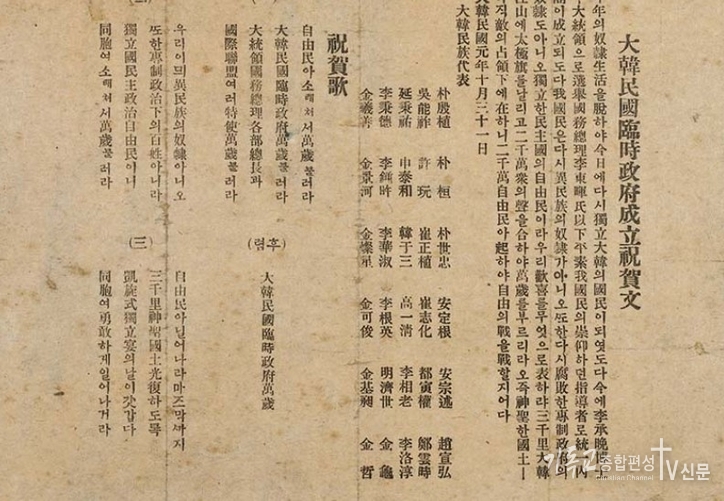 大韓民國臨時政府成立祝賀文
年의奴隷生活을脫하야今日에다시獨立大韓의國民이되엿도다今에李承晩博士
大統領으로選擧國務總理李東暉氏以下平素我國民의崇仰하던指導者로統一內
이成立되도다我國民은다시異民族의奴隷가아니오또한다시腐敗한專制政府의
奴隷도아니오獨立한民主國의自由民이라우리歡喜를무엇으로表하랴三千里大韓
江山에太極旗를날리고二千萬衆의聲을合하야萬歲를부르리라오즉神聖한國土ㅣ
지敵의占領下에在하니二千萬自由民아起하야自由의戰을戰할지어다
大韓民國元年十月三十一日
大韓民族代表
朴殷植 朴桓 朴世忠 安定根 安宗述 趙宣弘
吳能祥 許玩 崔正植 崔志化 都寅權 鄭雲時
延秉祐 申泰和 韓于三 高一清 李相老 李洛淳
李秉德 李鍾旿 李華淑 李根英 明濟世 金龜
金義善 金景河 金燦星 金可俊 金基昶 金哲
祝賀歌
自由民아소래처서萬歲불러라
大韓民國臨時政府萬歲불러라
大統領國務總理各部總長과
國際聯盟여러特使萬歲불러라
(후렴)
大韓民國臨時政府萬歲
(二)
우리이믜異民族의奴隷아니오
또한專制政治下의百姓아니라
獨立國民主政治自由民이니
同胞여소래처서萬歲불러라
(三)
自由民아닐어나라마즈막까지
三千里神聖國土光復하도록
凱旋式獨立宴의날이갓갑다
同胞여勇敢하게일어나거라
기독교종합편성TV신문
Christian Channel